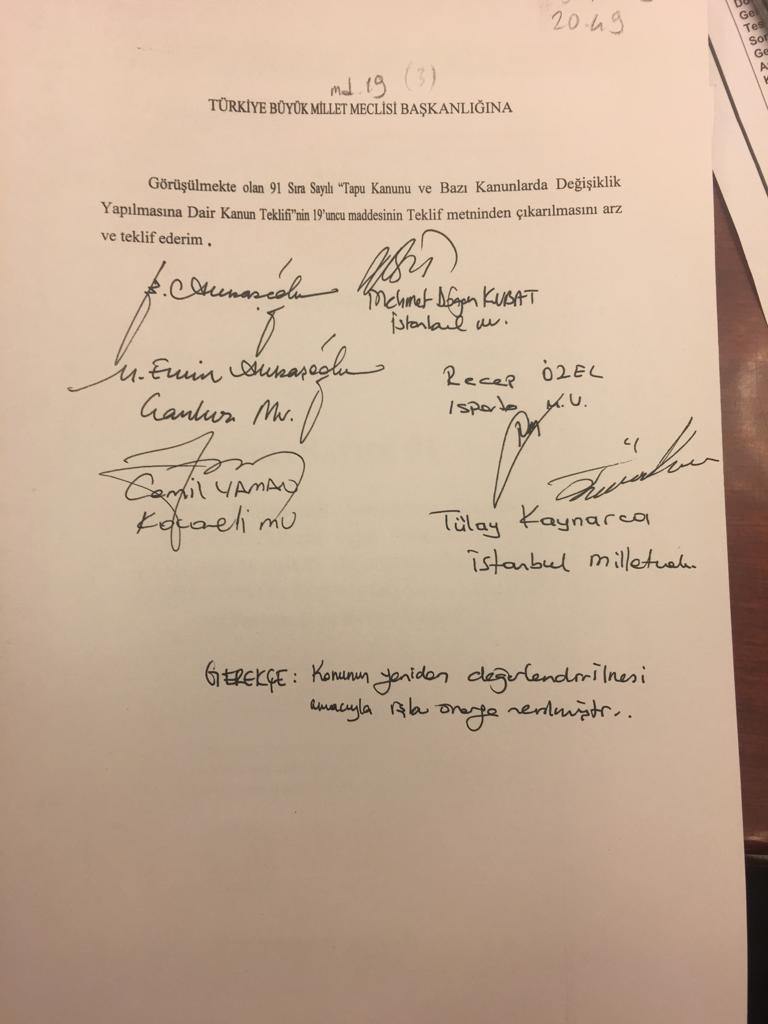 20.49
md. 19 (3)
TÜRKİYE BÜYÜK MİLLET MECLİSİ BAŞKANLIĞINA
Görüşülmekte olan 91 Sıra Sayılı "Tapu Kanunu ve Bazı Kanunlarda Değişiklik
Yapılmasına Dair Kanun Teklifi"nin 19'uncu maddesinin Teklif metninden çıkarılmasını arz
ve teklif ederim .
Mehmet Doğan KUBAT
İstanbul
M. Emin
Mv.
Recep ÖZEL
Isparta M.V.
Cemil YAMAN
Kocaeli MV
Tülay Kaynarca
İstanbul
GEREKÇE: Konunun yeniden değerlendirilmesi
amacıyla işbu önerge verilmiştir.